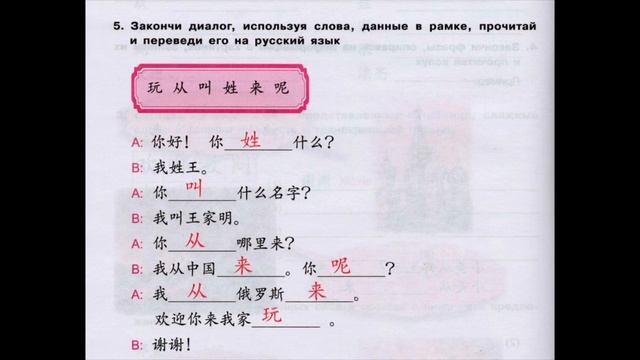 5. Закончи диалог, используя слова, данные в рамке, прочитай
и переведи его на русский язык
玩 从 叫 姓 来 呢
A: 你好！ 你 姓 什么？
B: 我姓王。
A: 你 叫 什么名字？
B: 我叫王家明。
A: 你 从 哪里来？
B: 我从中国 来 。你 呢 ？
A: 我 从 俄罗斯 来 。
欢迎你来我家 玩 。
B: 谢谢！